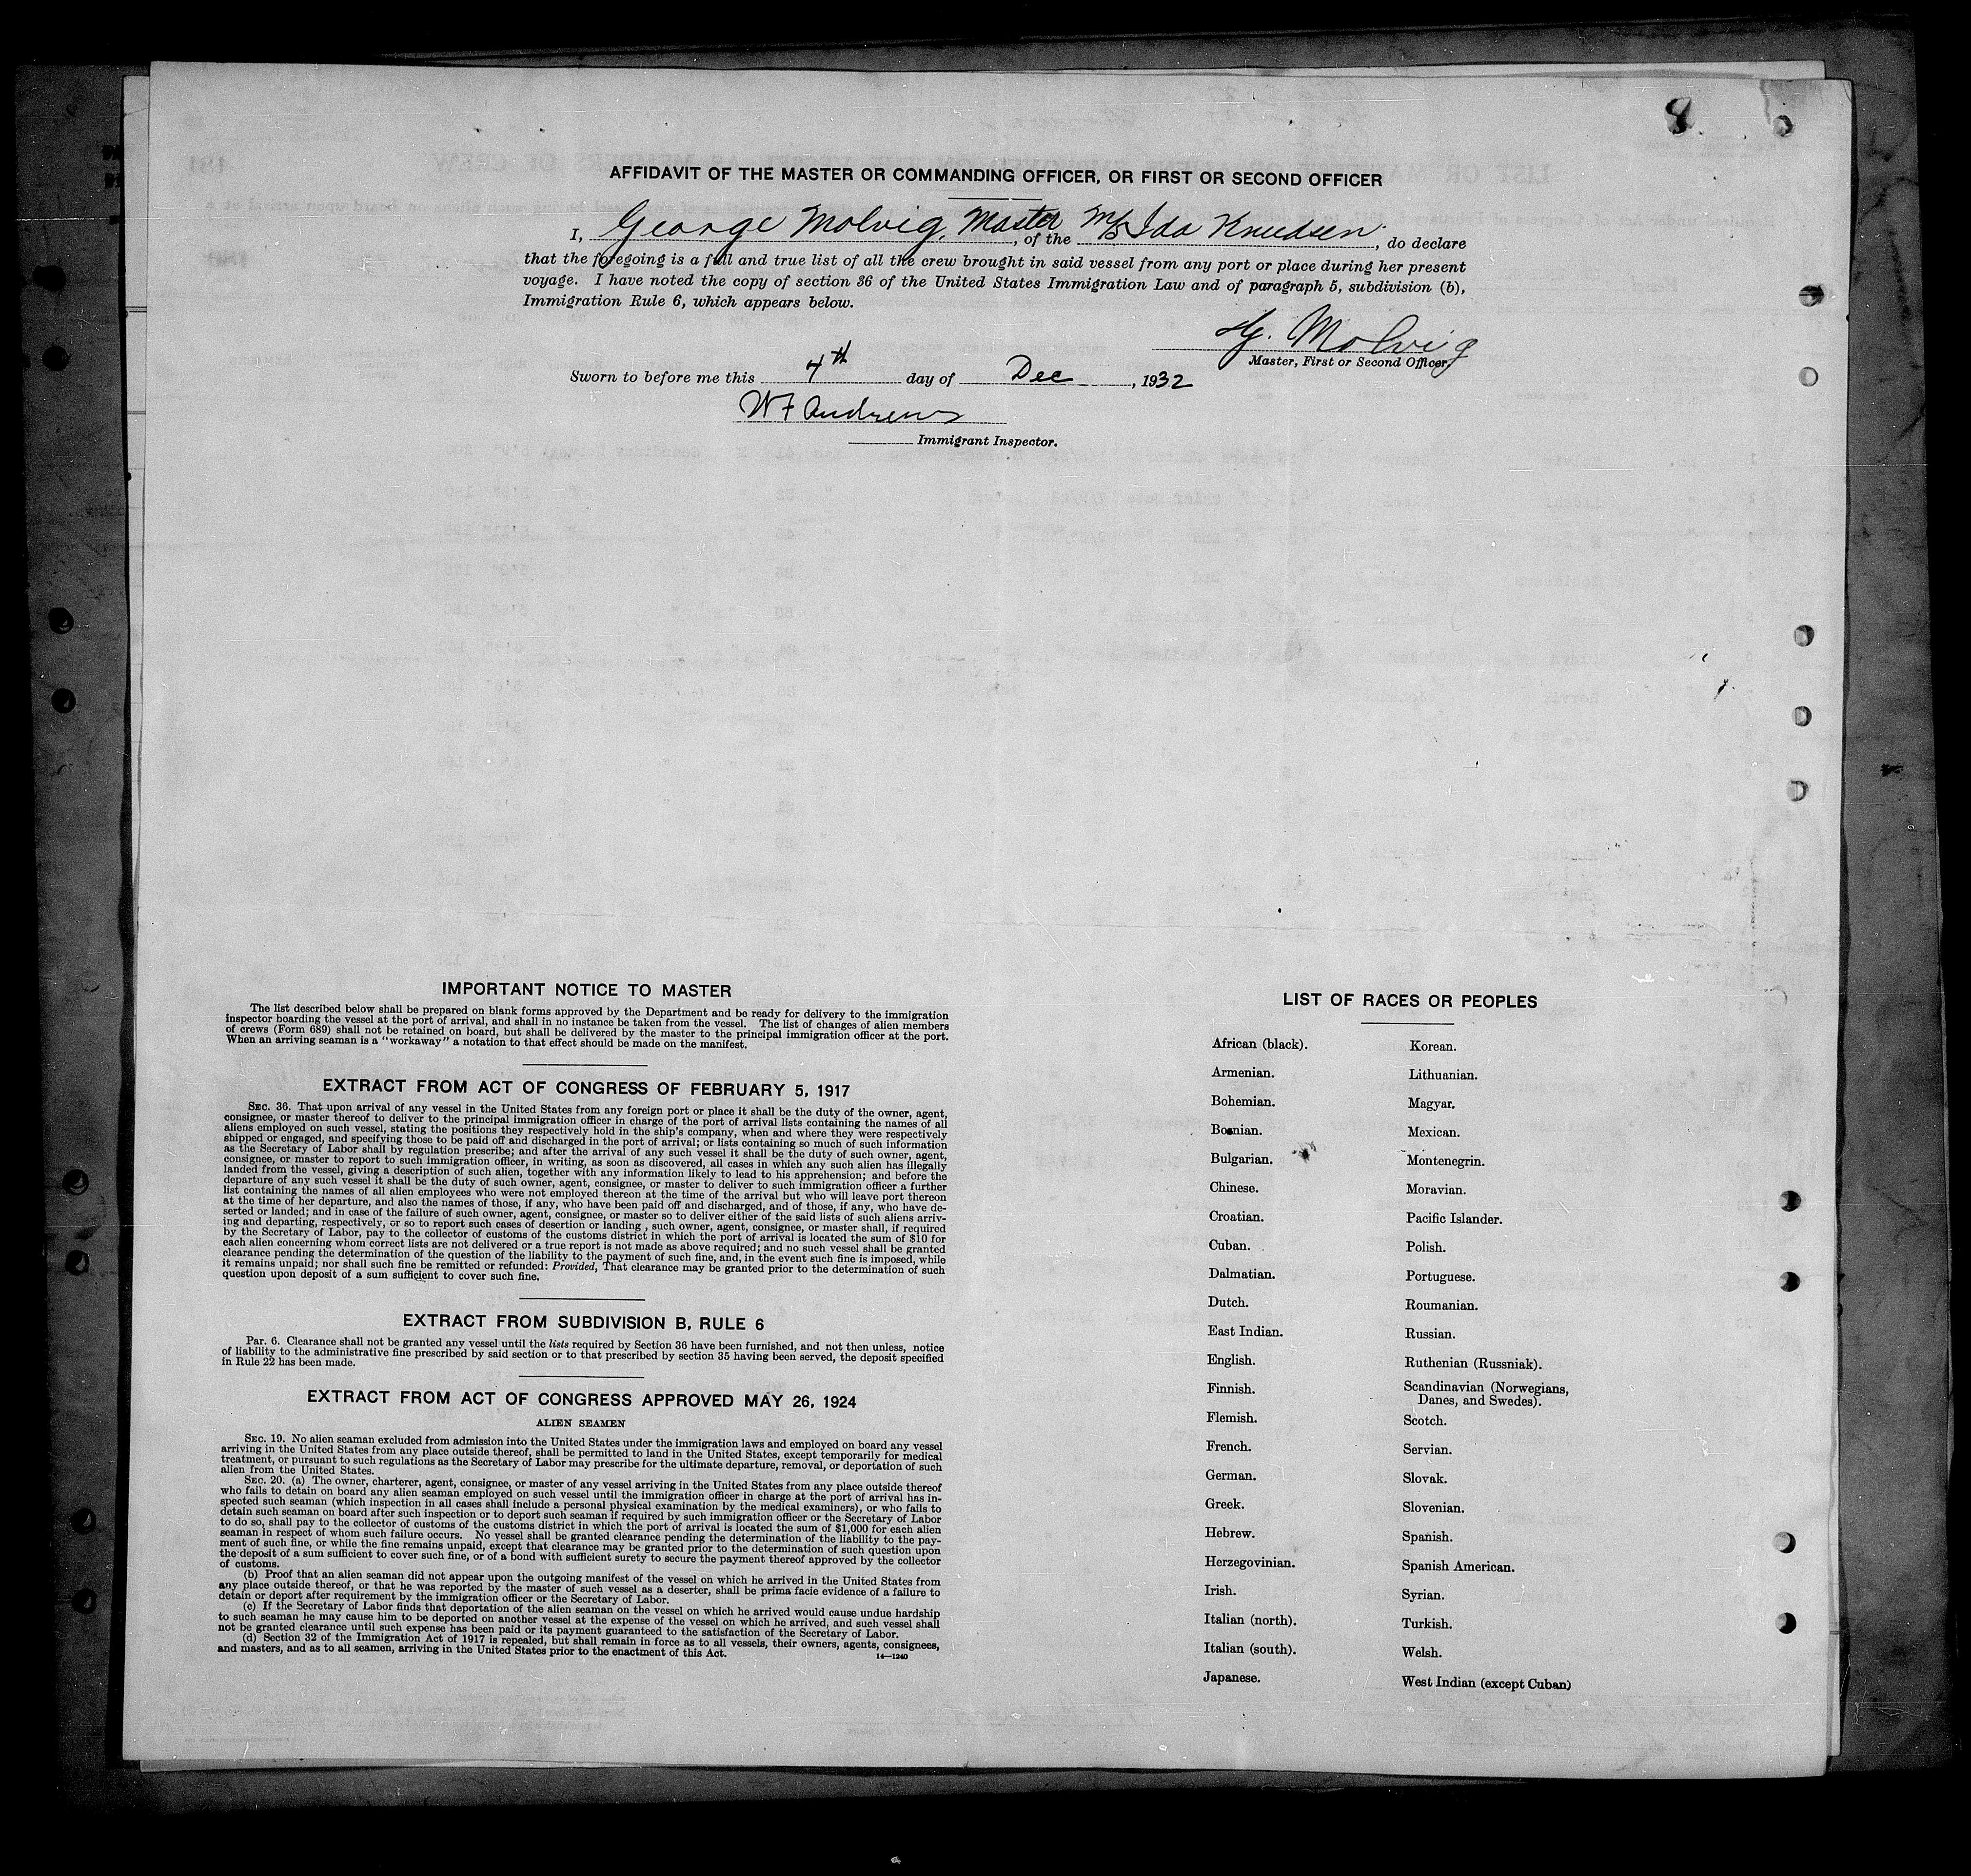 8
AFFIDAVIT OF THE MASTER OR COMMANDING OFFICER, OR FIRST OR SECOND OFFICER
I, George Molvig, Master, of the M/S Ida Knudsen, do declare
that the foregoing is a full and true list of all the crew brought in said vessel from any port or place during her present
voyage. I have noted the copy of section 36 of the United States Immigration Law and of paragraph 5, subdivision (b),
Immigration Rule 6, which appears below.
G. Molvig
Master, First or Second Officer.
Sworn to before me this 4th day of Dec, 1932
W F Andrews
Immigrant Inspector.
IMPORTANT NOTICE TO MASTER
The list described below shall be prepared on blank forms approved by the Department and be ready for delivery to the immigration
inspector boarding the vessel at the port of arrival, and shall in no instance be taken from the vessel. The list of changes of alien members
of crews (Form 689) shall not be retained on board, but shall be delivered by the master to the principal immigration officer at the port.
When an arriving seaman is a "workaway" a notation to that effect should be made on the manifest.
EXTRACT FROM ACT OF CONGRESS OF FEBRUARY 5, 1917
SEC. 36. That upon arrival of any vessel in the United States from any foreign port or place it shall be the duty of the owner, agent,
consignee, or master thereof to deliver to the principal immigration officer in charge of the port of arrival lists containing the names of all
aliens employed on such vessel, stating the positions they respectively hold in the ship's company, when and where they were respectively
shipped or engaged, and specifying those to be paid off and discharged in the port of arrival; or lists containing so much of such information
as the Secretary of Labor shall by regulation prescribe; and after the arrival of any such vessel it shall be the duty of such owner, agent,
consignee, or master to report to such immigration officer, in writing, as soon as discovered, all cases in which any such alien has illegally
landed from the vessel, giving a description of such alien, together with any information likely to lead to his apprehension; and before the
departure of any such vessel it shall be the duty of such owner, agent, consignee, or master to deliver to such immigration officer a further
list containing the names of all alien employees who were not employed thereon at the time of the arrival but who will leave port thereon
at the time of her departure, and also the names of those, if any, who have been paid off and discharged, and of those, if any, who have de-
serted or landed; and in case of the failure of such owner, agent, consignee, or master so to deliver either of the said lists of such aliens arriv-
ing and departing, respectively, or so to report such cases of desertion or landing , such owner, agent, consignee, or master shall, if required
by the Secretary of Labor, pay to the collector of customs of the customs district in which the port of arrival is located the sum of $10 for
each alien concerning whom correct lists are not delivered or a true report is not made as above required; and no such vessel shall be granted
clearance pending the determination of the question of the liability to the payment of such fine, and, in the event such fine is imposed, while
it remains unpaid; nor shall such fine be remitted or refunded: Provided, That clearance may be granted prior to the determination of such
question upon deposit of a sum sufficient to cover such fine.
EXTRACT FROM SUBDIVISION B, RULE 6
Par. 6. Clearance shall not be granted any vessel until the lists required by Section 36 have been furnished, and not then unless, notice
of liability to the administrative fine prescribed by said section or to that prescribed by section 35 having been served, the deposit specified
in Rule 22 has been made.
EXTRACT FROM ACT OF CONGRESS APPROVED MAY 26, 1924
ALIEN SEAMEN
SEC. 19. No alien seaman excluded from admission into the United States under the immigration laws and employed on board any vessel
arriving in the United States from any place outside thereof, shall be permitted to land in the United States, except temporarily for medical
treatment, or pursuant to such regulations as the Secretary of Labor may prescribe for the ultimate departure, removal, or deportation of such
alien from the United States.
SEC. 20. (a) The owner, charterer, agent, consignee, or master of any vessel arriving in the United States from any place outside thereof
who fails to detain on board any alien seaman employed on such vessel until the immigration officer in charge at the port of arrival has in-
spected such seaman (which inspection in all cases shall include a personal physical examination by the medical examiners), or who fails to
detain such seaman on board after such inspection or to deport such seaman if required by such immigration officer or the Secretary of Labor
to do so, shall pay to the collector of customs of the customs district in which the port of arrival is located the sum of $1,000 for each alien
seaman in respect of whom such failure occurs. No vessel shall be granted clearance pending the determination of the liability to the pay-
ment of such fine, or while the fine remains unpaid, except that clearance may be granted prior to the determination of such question upon
the deposit of a sum sufficient to cover such fine, or of a bond with sufficient surety to secure the payment thereof approved by the collector
of customs.
(b) Proof that an alien seaman did not appear upon the outgoing manifest of the vessel on which he arrived in the United States from
any place outside thereof, or that he was reported by the master of such vessel as a deserter, shall be prima facie evidence of a failure to
detain or deport after requirement by the immigration officer or the Secretary of Labor.
(c) If the Secretary of Labor finds that deportation of the alien seaman on the vessel on which he arrived would cause undue hardship
to such seaman he may cause him to be deported on another vessel at the expense of the vessel on which he arrived, and such vessel shall
not be granted clearance until such expense has been paid or its payment guaranteed to the satisfaction of the Secretary of Labor.
(d) Section 32 of the Immigration Act of 1917 is repealed, but shall remain in force as to all vessels, their owners, agents, consignees,
and masters, and as to all seamen, arriving in the United States prior to the enactment of this Act.
14—1240
LIST OF RACES OR PEOPLES
African (black).
Armenian.
Bohemian.
Bosnian.
Bulgarian.
Chinese.
Croatian.
Cuban.
Dalmatian.
Dutch.
East Indian.
English.
Finnish.
Flemish.
French.
German.
Greek.
Hebrew.
Herzegovinian.
Irish.
Italian (north).
Italian (south).
Japanese.
Korean.
Lithuanian.
Magyar.
Mexican.
Montenegrin.
Moravian.
Pacific Islander.
Polish.
Portuguese.
Roumanian.
Russian.
Ruthenian (Russniak).
Scandinavian (Norwegians,
Danes, and Swedes).
Scotch.
Servian.
Slovak.
Slovenian.
Spanish.
Spanish American.
Syrian.
Turkish.
Welsh.
West Indian (except Cuban)